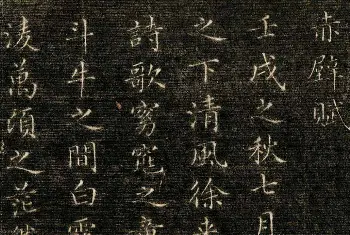 赤壁賦
壬戌之秋七月
之下清風徐来
詩歌窈窕之章
斗牛之間白露
凌萬頃之茫然